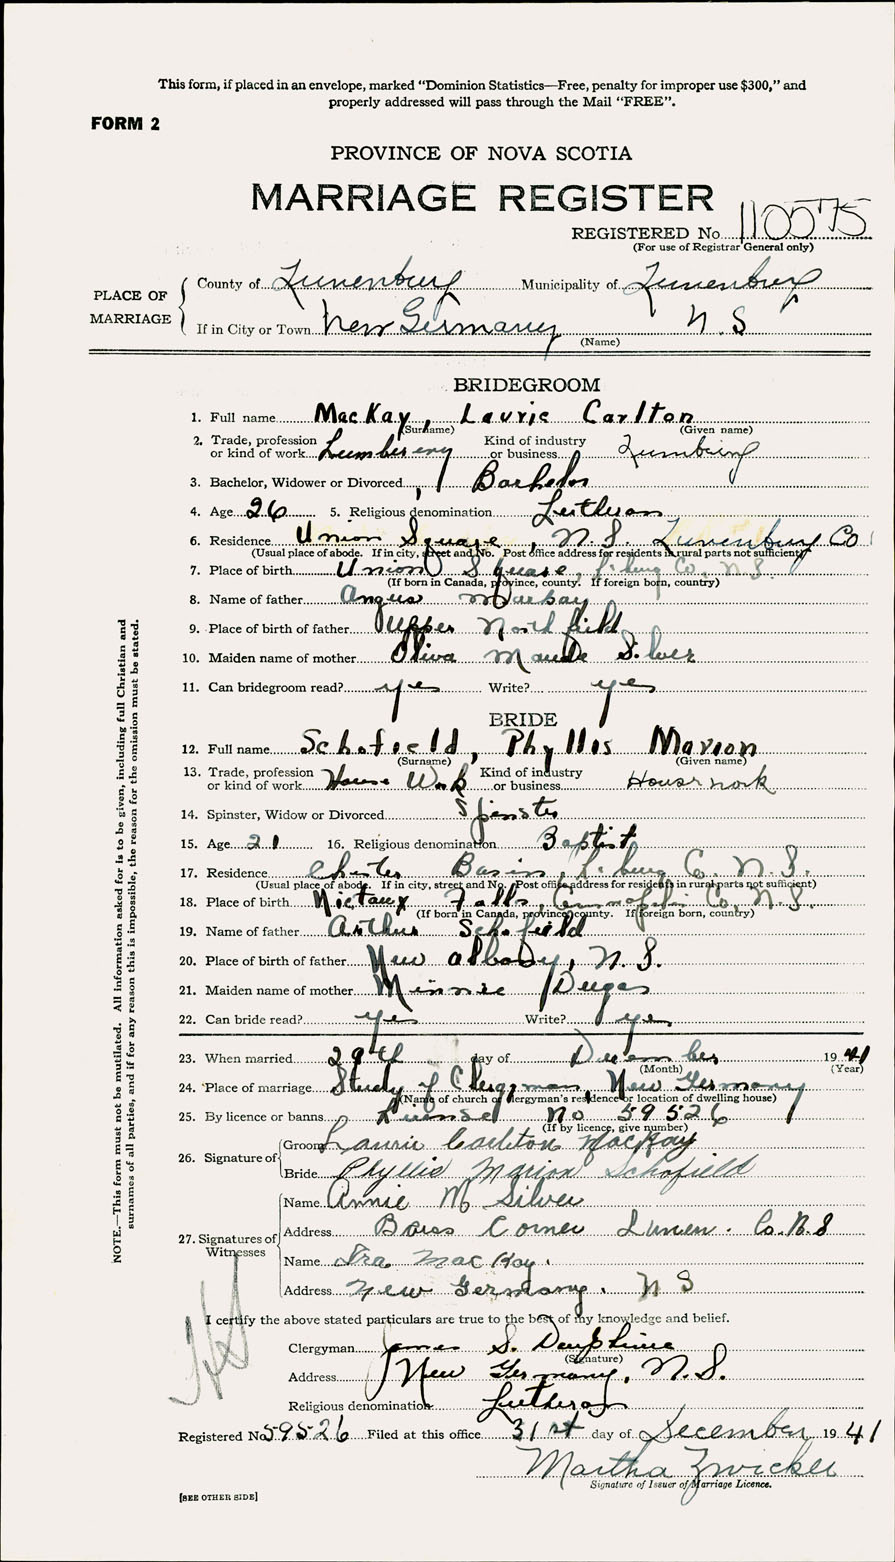 This form, if placed in an envelope, marked “Dominion Statistics—Free, penalty for improper use $300,” and
properly addressed will pass through the Mail “FREE”.
FORM 2
PROVINCE OF NOVA SCOTIA
MARRIAGE REGISTER
REGISTERED No. 110575
(For use of Registrar General only)
PLACE OF MARRIAGE
County of Lunenburg Municipality of Lunenburg
If in City or Town New Germany N.S
(Name)
BRIDEGROOM
1. Full name MacKay, Laurie Carlton
(Surname) (Given name)
2. Trade, profession or kind of work Lumbering Kind of industry or business Lumbering
3. Bachelor, Widower or Divorced Bachelor
4. Age 26 5. Religious denomination Lutheran
6. Residence Union Square, N.S. Lunenburg Co
(Usual place of abode. If in city, street and No. Post office address for residents in rural parts not sufficient)
7. Place of birth Union Square, L'burg Co. N.S.
(If born in Canada, province, county. If foreign born, country)
8. Name of father Angus Mackay
9. Place of birth of father Upper Northfield
10. Maiden name of mother Oliva Maude Silver
11. Can bridegroom read? yes Write? yes
BRIDE
12. Full name Schofield, Phyllis Marion
(Surname) (Given name)
13. Trade, profession or kind of work House Work Kind of industry or business Housework
14. Spinster, Widow or Divorced Spinster
15. Age 21 16. Religious denomination Baptist
17. Residence Chester Basin, L'burg Co. N.S.
(Usual place of abode. If in city, street and No. Post office address for residents in rural parts not sufficient)
18. Place of birth Nictaux Falls, Annapolis Co, N.S.
(If born in Canada, province, county. If foreign born, country)
19. Name of father Arthur Schofield
20. Place of birth of father New Albany, N.S.
21. Maiden name of mother Minnie
22. Can bride read? yes Write? yes
23. When married 29th day of December 1941
(Month) (Year)
24. Place of marriage Study of Clergyman, New Germany
(Name of church or clergyman's residence or location of dwelling house)
25. By licence or banns License No 59526
(If by licence, give number)
26. Signature of
Groom Laurie Carlton MacKay
Bride Phyllis Marion Schofield
27. Signatures of Witnesses
Name Annie M Silver
Address Barss Corner Lunen. Co. N.S
Name Ira MacKay.
Address New Germany. N S
I certify the above stated particulars are true to the best of my knowledge and belief.
Clergyman James S. Dauphinee
(Signature)
Address New Germany, N.S.
Religious denomination Lutheran
Registered No. 59526 Filed at this office 31st day of December 1941
Martha Zwicker
Signature of Issuer of Marriage Licence.
[SEE OTHER SIDE]
NOTE.—This form must not be mutilated. All information asked for is to be given, including full Christian and
surnames of all parties, and if for any reason this is impossible, the reason for the omission must be stated.